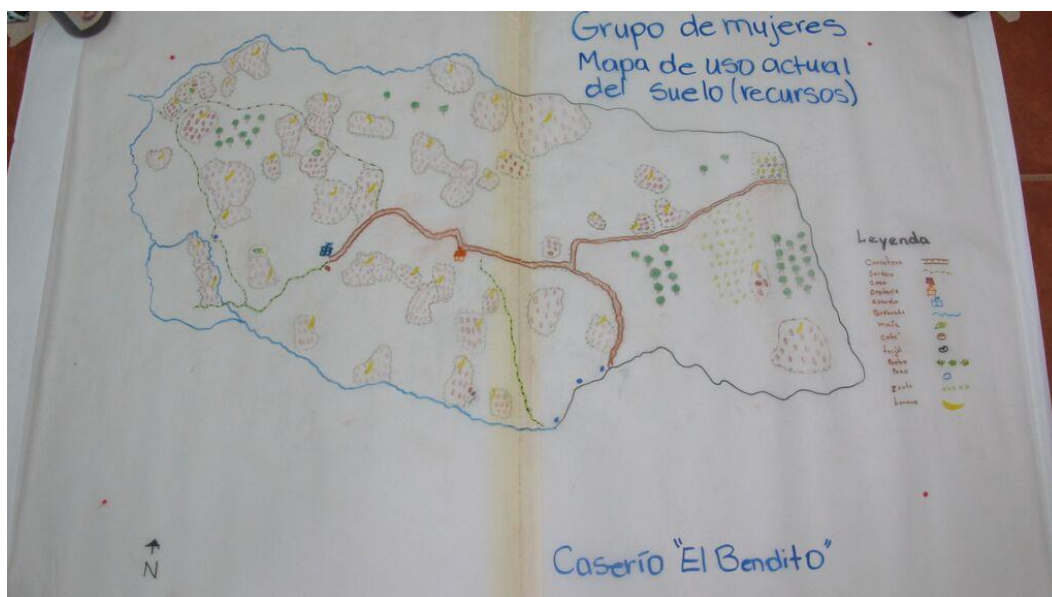 Grupo de mujeres
Mapa de uso actual
del suelo (recursos)
Leyenda
Carretera
Sendero
Casa
Oratorio
escuela
Quebrada
maíz
Café
frijol
Pozo
Zacate
banano
N
Caserío "El Bendito"